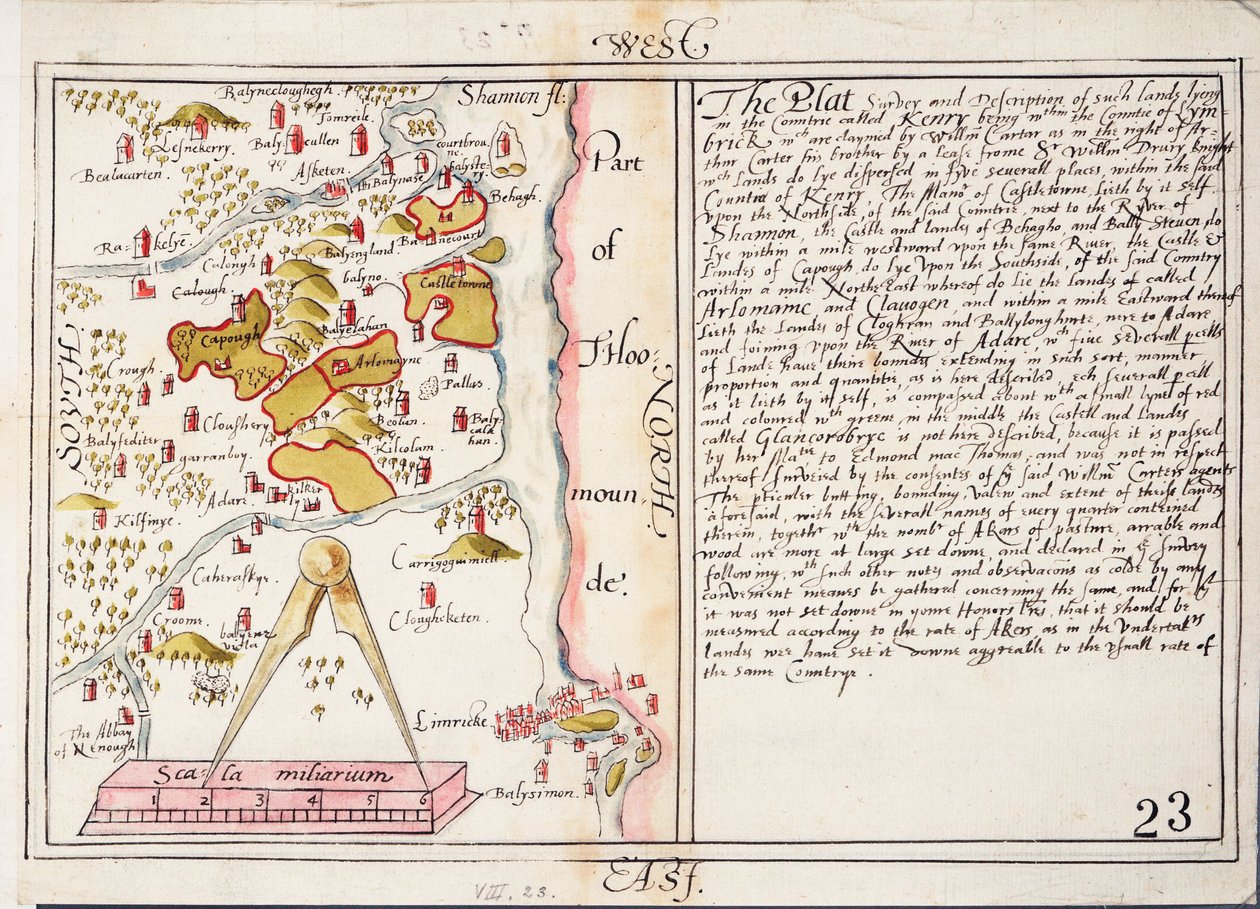 WEST.
Balynecloughegh.
Tomreile.
Shannon fl:
Lesnekerry.
Baly cullen
courtbrou,
ne.
Bealacarten.
Asketen.
Balynase
Balyste,
ry.
Behagh.
Ra kelye.
Balyengland.
Calough
balyno.
Calough.
Castletowne
Balyelahan
Capough
Arlomayne
Crough.
Pallas.
Beolan.
Baly,
cala
han.
Cloughery
Balyfediter
Kilcolam
garranboy.
Adare
kilker
Kilfinye.
Carrigoguiniell.
Caheraskyr.
Croome.
Cloughcketen.
The Abbay
of Nenough
Limricke.
Balysimon.
Scala miliarium
1 2 3 4 5 6
SOVTH.
NORTH.
Part
of
Thoo:
moun,
de.
The Plat Survey and Description of such lands lyeng
in the Countrie called Kenry being wthin the Countie of Lym=
brick wch are claymed by Willm Cartar as in the right of Ar=
thur Carter his brother by a lease frome Sr Willm Drury knight
wch Lands do lye dispersed in fyve severall places, within the said
Countrie of Kenry, The Manor of Castletowne, lieth by it self
vpon the Northside, of the said Countrie, next to the Ryver of
Shannon, the Castle and landes of Behagho, and Bally Steven do
lye within a mile westward vpon the same River, the Castle &
Landes of Capough, do lye vpon the Southside, of the said Countrey
within a mile Northe East whereof do lie the Landes of called
Arlomame and Clauogen, and within a mile Eastward therof
lieth the Landes of Cloghran and Ballylonghnte, nere to Adare
and joining vpon the River of Adare wch five severall pcells
of Lande have theire boundes extending in such sort, manner
proportion and quantitie, as is here described, ech severall pcell
as it lieth by it self, is compassed about wth a small lyne of red
and coloured wth greene, in the middle the Castell and Landes
called Glancorobrye is not here described, because it is passed
by her Matie to Edmond mac Thomas, and was not in respect
thereof Surveied by the consentes of ye said Willm Carters agents
The pticuler butting, bounding, valew and extent of theise landes
aforesaid, with the severall names of every quarter conteined
therein, together wth the nomber of Akers of pasture, arrable and
wood are more at large set downe, and declared in ye Survey
following, wth such other notes and observacons as colde by any
convenient meanes be gathered concerning the same, and for yt
it was not set downe in youre Honors lres, that it should be
measured according to the rate of Akers, as in the vndertakrs
landes wee haue set it downe aggreable to the vsuall rate of
the same Countrye.
23
EAST.
VIII. 23.